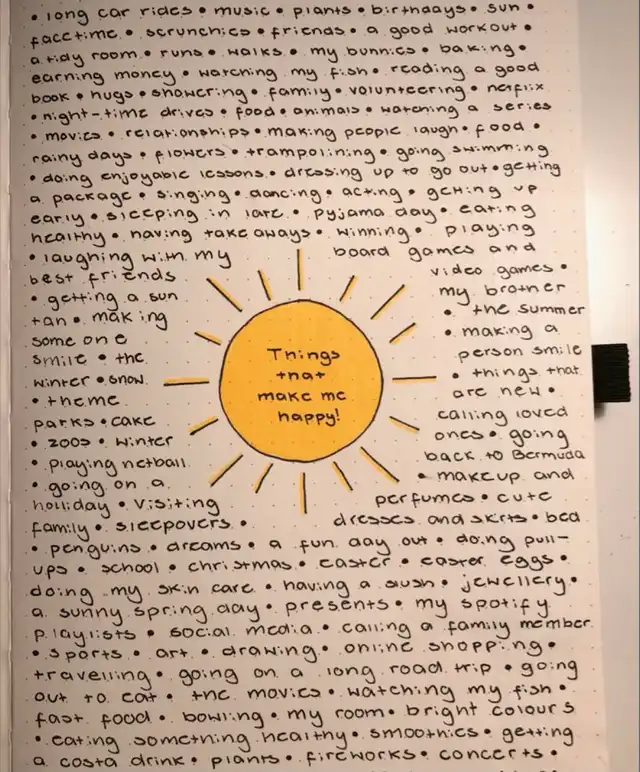 • long car rides • music • plants • birthdays • sun •
facetime • scrunchies • friends • a good workout •
a tidy room • runs • walks • my bunnies • baking •
earning money • watching my fish • reading a good
book • hugs • showering • family • volunteering • netflix
• night-time drives • food • animals • watching a series
• movies • relationships • making people laugh • food •
rainy days • flowers • trampolining • going swimming
• doing enjoyable lessons • dressing up to go out • getting
a package • singing • dancing • acting • getting up
early • sleeping in late • pyjama day • eating
healthy • having take aways • winning • playing
• laughing with my board games and
best friends video games •
• getting a sun my brother
tan • making • the summer
some one • making a
smile • the person smile
winter • snow. • things that
• theme are new •
parks • cake calling loved
• zoos • winter ones • going
• playing netball back to Bermuda
• going on a • makeup and
holliday • visiting perfumes • cute
family • sleepovers • dresses and skirts • bed
Things
that
make me
happy!
• penguins • dreams • a fun day out • doing pull-
ups • school • christmas • easter • easter eggs •
doing my skin care • having a slush • jewellery •
a sunny spring day • presents • my spotify
playlists • social media • calling a family member
• sports • art • drawing • online shopping •
travelling • going on a long road trip • going
out to eat • the movies • watching my fish •
fast food • bowling • my room • bright colours
• eating something healthy • smoothies • getting
a costa drink • plants • fireworks • concerts •